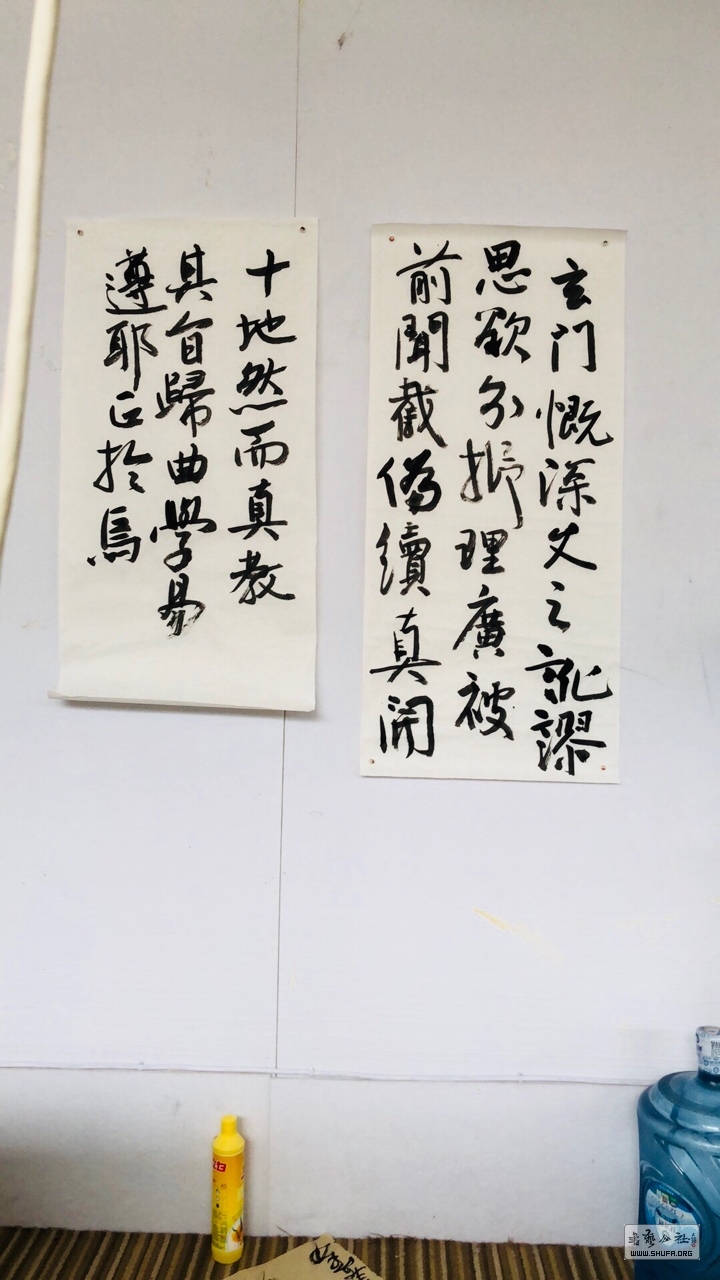 玄門慨深文之訛謬
思欲分析理廣彼
前聞截偽續真開
十地然而真教
其旨歸曲學易
遵耶正於焉
書藝公社
WWW.SHUFA.ORG